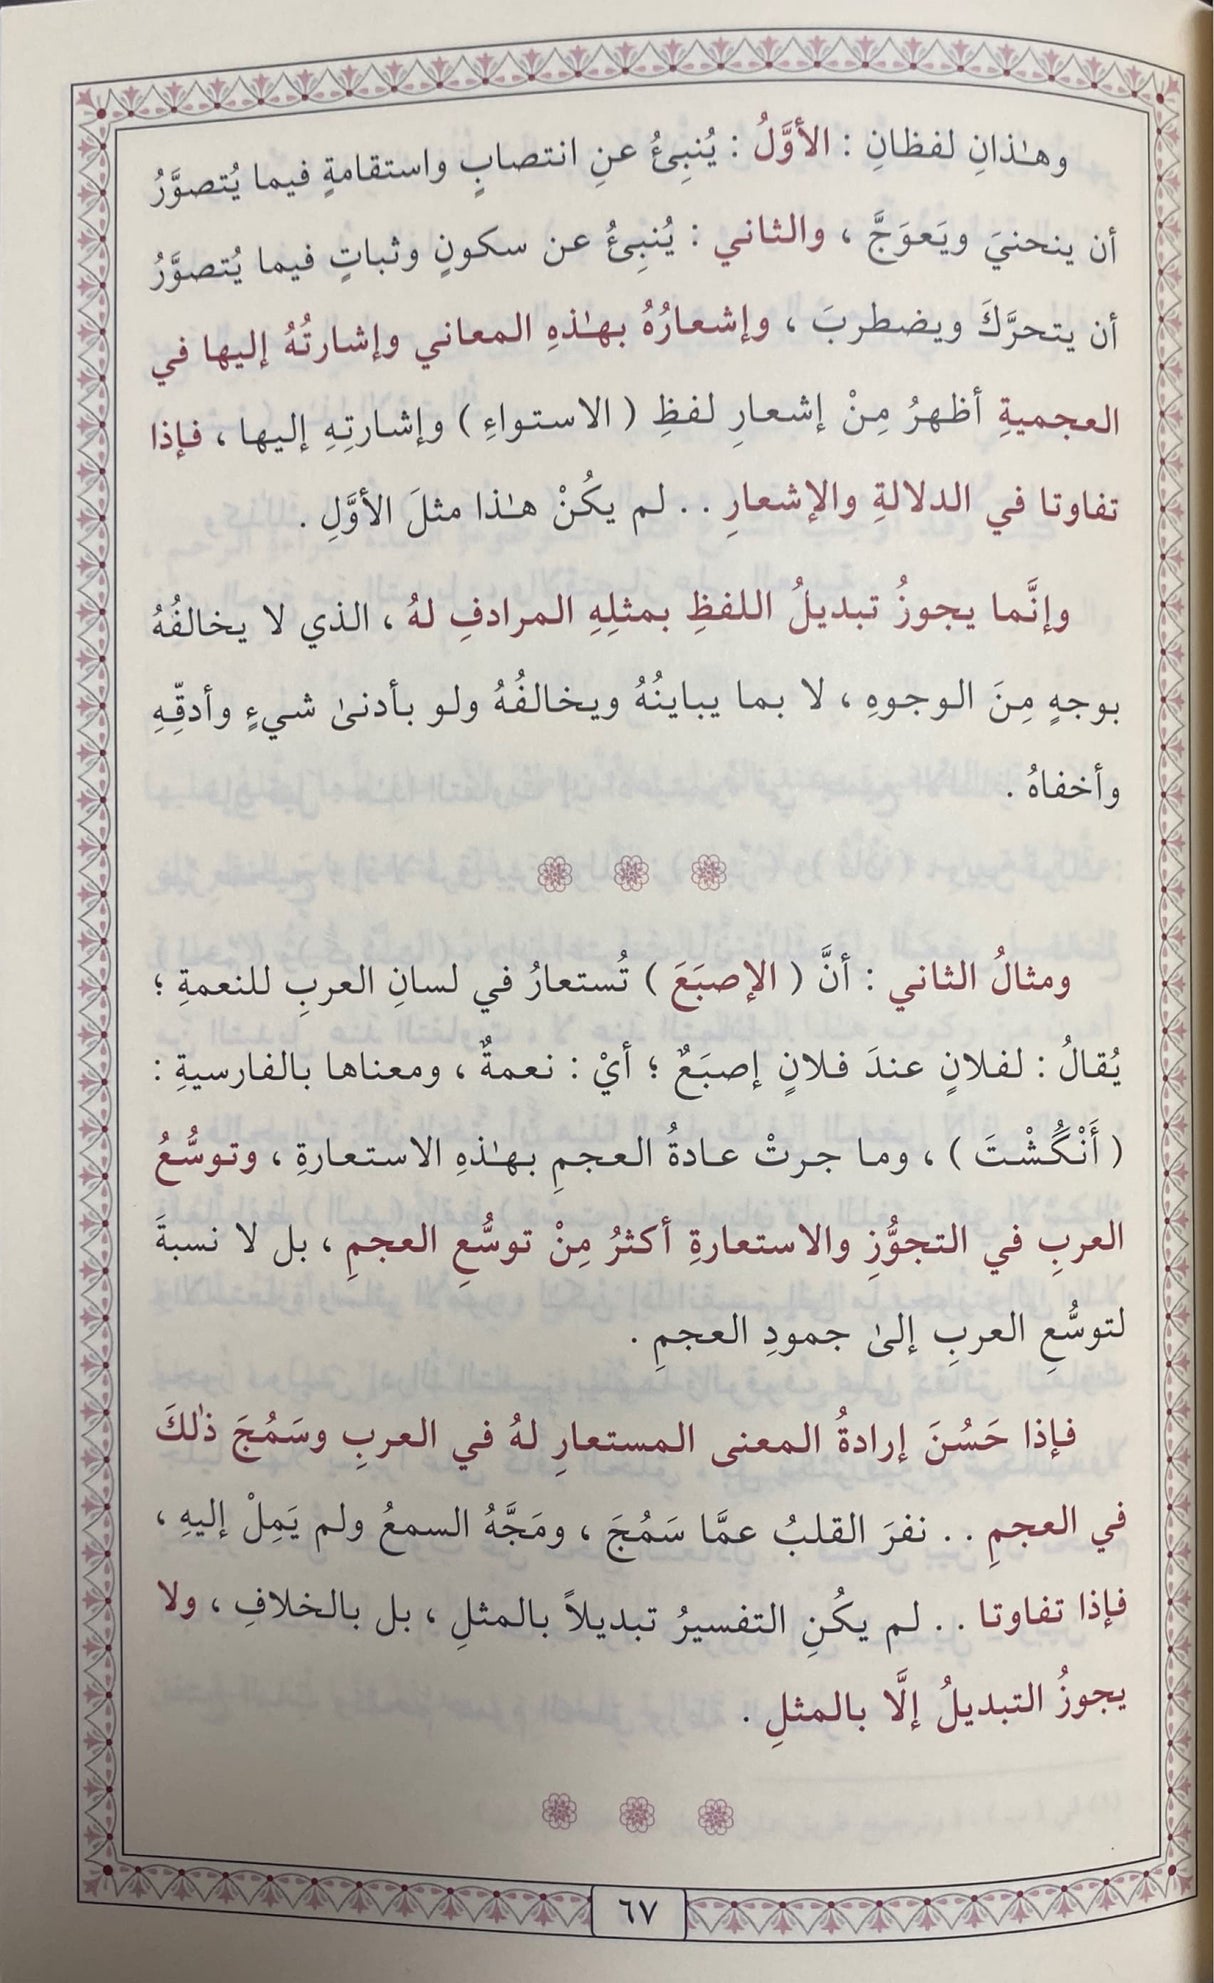 وهـٰذانِ لفظانِ : الأوَّلُ : يُنبِئُ عنِ انتصابٍ واستقامةٍ فيما يُتصوَّرُ
أن ينحنيَ ويَعوَجَّ ، والثاني : يُنبِئُ عن سكونٍ وثباتٍ فيما يُتصوَّرُ
أن يتحرَّكَ ويضطربَ ، وإشعارُهُ بهـٰذهِ المعاني وإشارتُهُ إليها في
العجميةِ أظهرُ مِنْ إشعارِ لفظِ ( الاستواءِ ) وإشارتِهِ إليها ، فإذا
تفاوتا في الدلالةِ والإشعارِ . . لم يكُنْ هـٰذا مثلَ الأوَّلِ .
وإنَّما يجوزُ تبديلُ اللفظِ بمثلِهِ المرادفِ لهُ ، الذي لا يخالفُهُ
بوجهٍ مِنَ الوجوهِ ، لا بما يباينُهُ ويخالفُهُ ولو بأدنىٰ شيءٍ وأدقِّهِ
وأخفاهُ .
ومثالُ الثاني : أنَّ ( الإصبَعَ ) تُستعارُ في لسانِ العربِ للنعمةِ ؛
يُقالُ : لفلانٍ عندَ فلانٍ إصبَعٌ ؛ أيْ : نعمةٌ ، ومعناها بالفارسيةِ :
( أَنْگُشْتَ ) ، وما جرتْ عادةُ العجمِ بهـٰذهِ الاستعارةِ ، وتوسُّعُ
العربِ في التجوُّزِ والاستعارةِ أكثرُ مِنْ توسُّعِ العجمِ ، بل لا نسبةَ
لتوسُّعِ العربِ إلىٰ جمودِ العجمِ .
فإذا حَسُنَ إرادةُ المعنى المستعارِ لهُ في العربِ وسَمُجَ ذٰلكَ
في العجمِ . . نفرَ القلبُ عمَّا سَمُجَ ، ومَجَّهُ السمعُ ولم يَمِلْ إليهِ ،
فإذا تفاوتا . . لم يكُنِ التفسيرُ تبديلاً بالمثلِ ، بل بالخلافِ ، ولا
يجوزُ التبديلُ إلَّا بالمثلِ .
٦٧